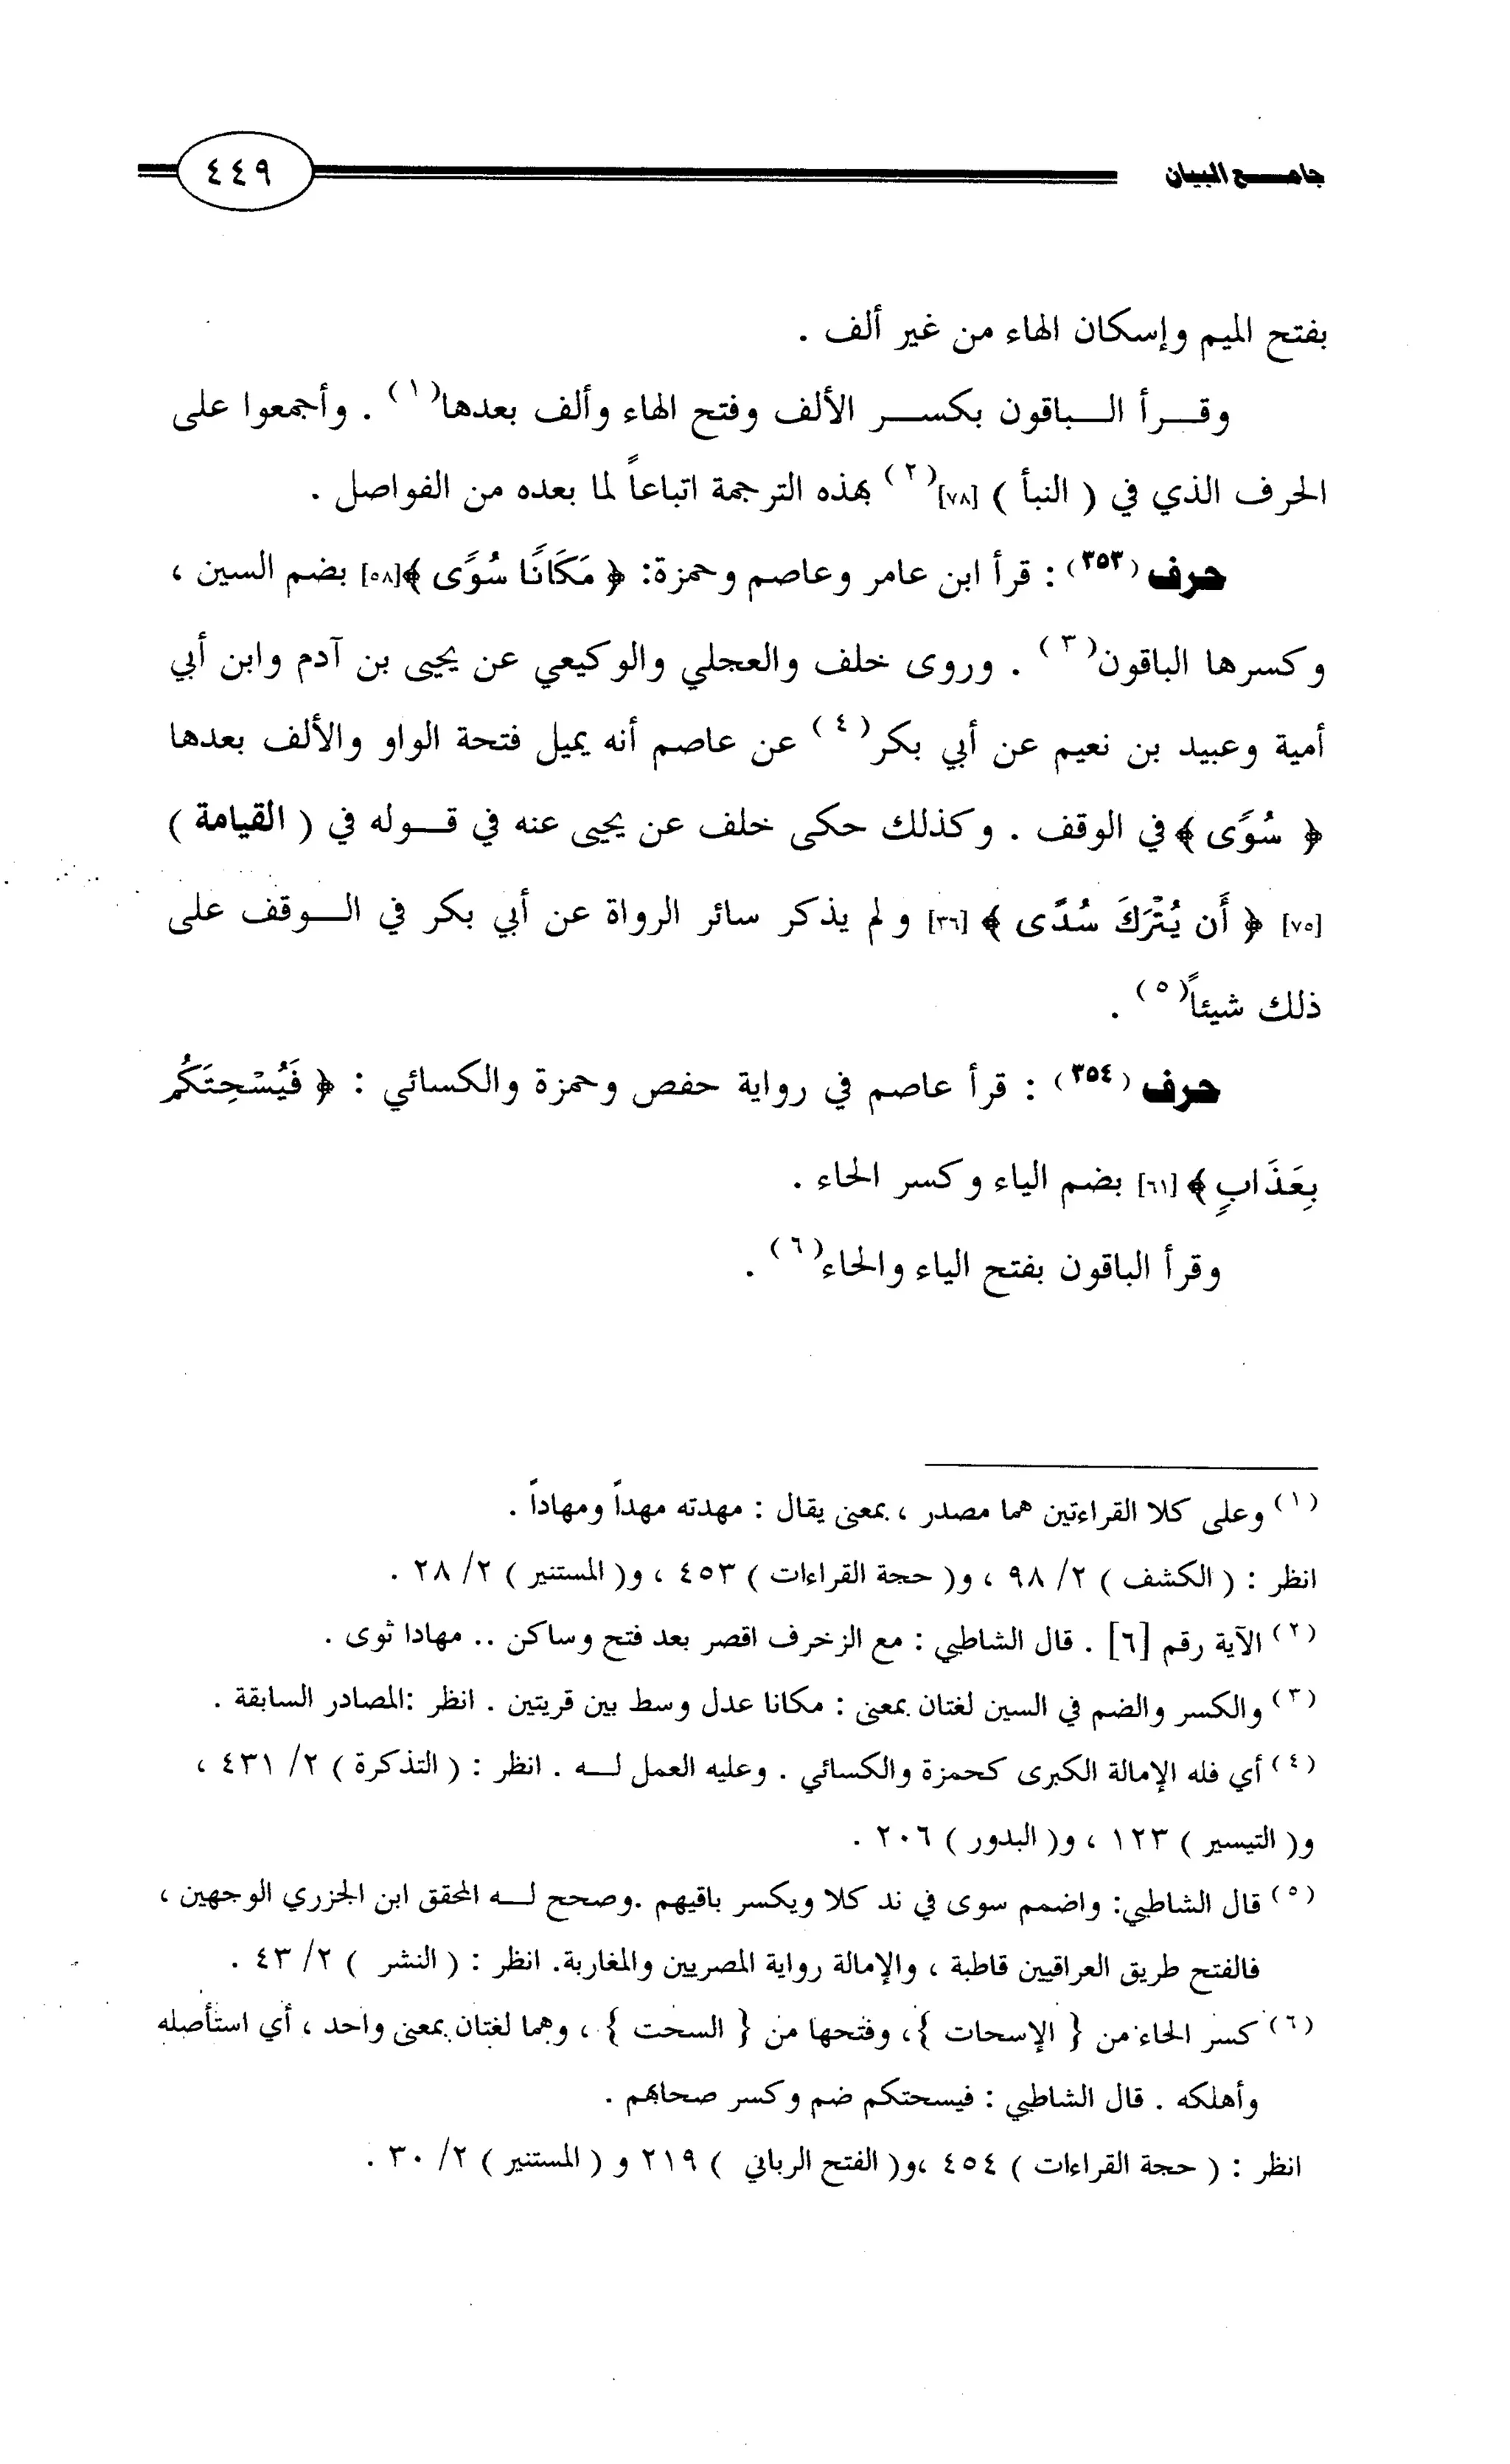 جامـــع البيان ٤٤٩
بفتح الميم وإسكان الهاء من غير ألف .
وقـــرأ البـــاقون بكســـر الألف وفتح الهاء وألف بعدها(١) . وأجمعوا على
الحرف الذي في ( النبأ ) [٧٨](٢) بهذه الترجمة اتباعاً لما بعده من الفواصل .
حرف (٣٥٣) : قرأ ابن عامر وعاصم وحمزة: ﴿ مَكَانًا سُوًى ﴾[٥٨] بضم السين ،
وكسرها الباقون(٣) . وروى خلف والعجلي والوكيعي عن يحيى بن آدم وابن أبي
أمية وعبيد بن نعيم عن أبي بكر(٤) عن عاصم أنه يميل فتحة الواو والألف بعدها
﴿ سُوًى ﴾في الوقف . وكذلك حكى خلف عن يحيى عنه في قـــوله في ( القيامة )
[٧٥] ﴿ أَن يُتْرَكَ سُدًى ﴾ [٣٦] و لم يذكر سائر الرواة عن أبي بكر في الـــوقف على
ذلك شيئاً(٥) .
حرف (٣٥٤) : قرأ عاصم في رواية حفص وحمزة والكسائي : ﴿ فَيُسْحِتَكُم
بِعَذَابٍ ﴾ [٦١] بضم الياء وكسر الحاء .
وقرأ الباقون بفتح الياء والحاء(٦) .
(١) وعلى كلا القراءتين هما مصدر ، بمعنى يقال : مهدته مهداً ومهاداً .
انظر : ( الكشف ) ٢/ ٩٨ ، و( حجة القراءات ) ٤٥٣ ، و( المستنير ) ٢/ ٢٨ .
(٢) الآية رقم [٦] . قال الشاطبي : مع الزخرف اقصر بعد فتح وساكن .. مهادا ثوى .
(٣) والكسر والضم في السين لغتان بمعنى : مكانا عدل وسط بين قريتين . انظر :المصادر السابقة .
(٤) أي فله الإمالة الكبرى كحمزة والكسائي . وعليه العمل لـــه . انظر : ( التذكرة ) ٢/ ٤٣١ ،
و( التيسير ) ١٢٣ ، و( البدور ) ٢٠٦ .
(٥) قال الشاطبي: واضمم سوى في ند كلا ويكسر باقيهم .وصحح لـــه المحقق ابن الجزري الوجهين ،
فالفتح طريق العراقيين قاطبة ، والإمالة رواية المصريين والمغاربة. انظر : ( النشر ) ٢/ ٤٣ .
(٦) كسر الحاء من { الإسحات }، وفتحها من { السحت } ، وهما لغتان بمعنى واحد ، أي استأصله
وأهلكه . قال الشاطبي : فيسحتكم ضم وكسر صحابهم .
انظر : ( حجة القراءات ) ٤٥٤ ،و( الفتح الرباني ) ٢١٩ و ( المستنير ) ٢/ ٣٠ .